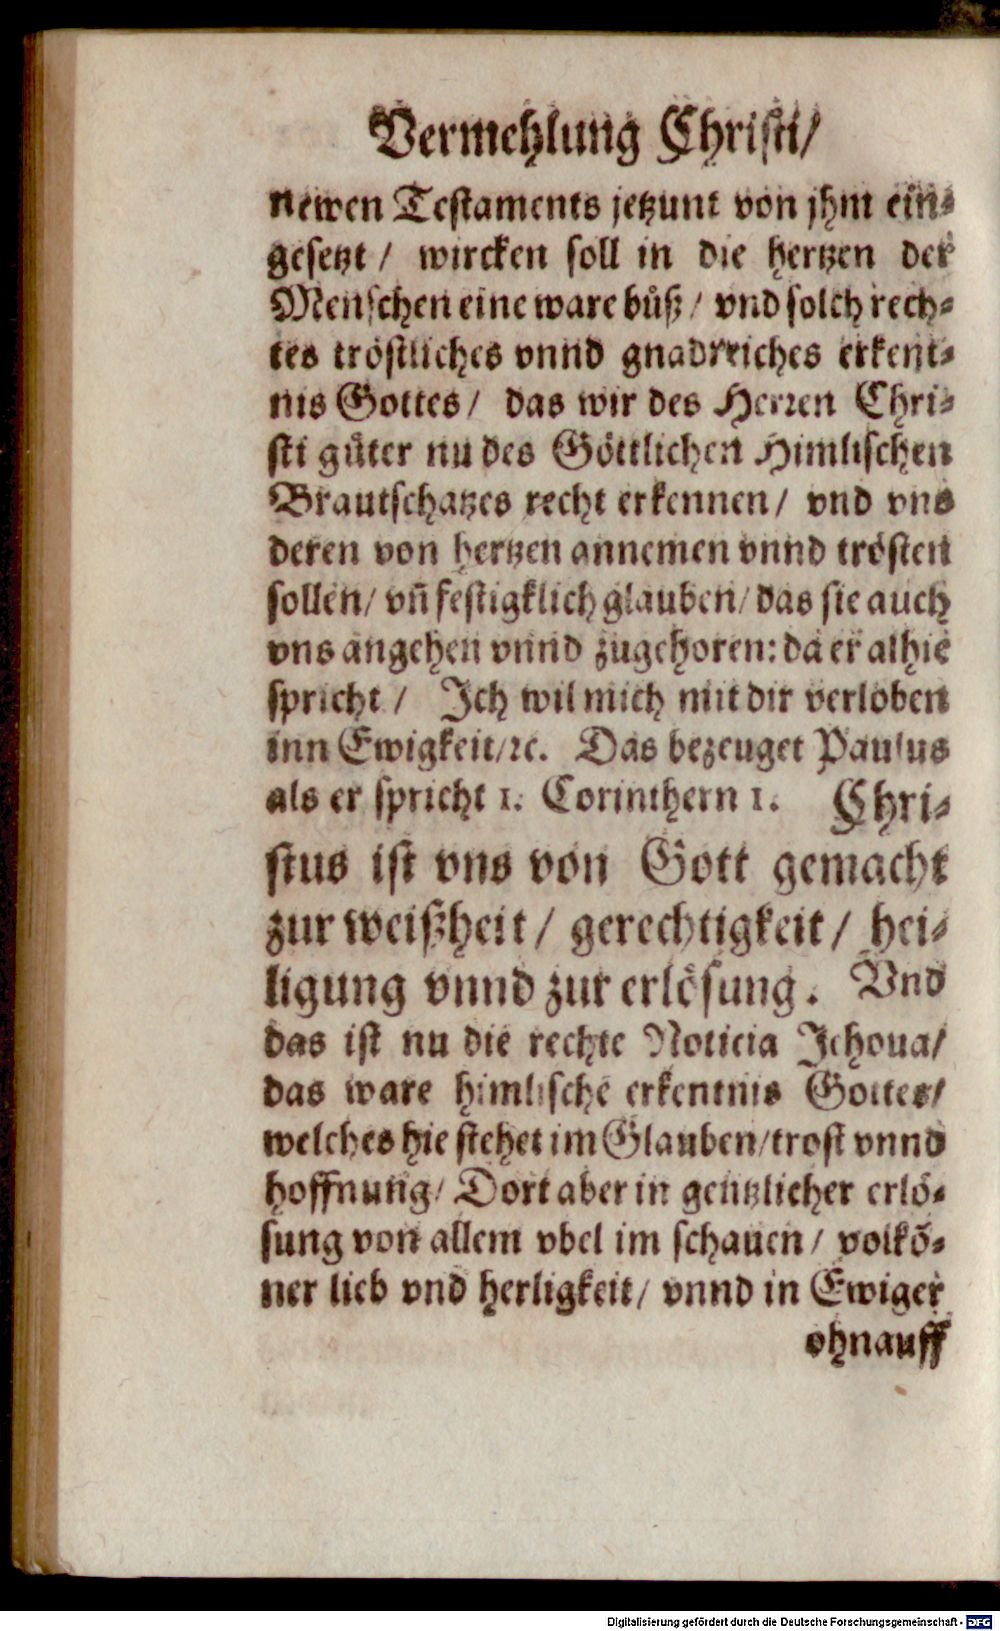 Vermehlung Christi/
newen Testaments jetzunt von jhm ein-
gesetzt / wircken soll in die hertzen der
Menschen eine ware bůß / vnd solch rech-
tes tröstliches vnnd gnadreiches erkent-
nis Gottes / das wir des Herren Chri-
sti gůter nu des Göttlichen Himlischen
Brautschatzes recht erkennen / vnd vns
deren von hertzen annemen vnnd trösten
sollen / vñ festigklich glauben / das sie auch
vns angehen vnnd zugehoren: da er alhie
spricht / Ich wil mich mit dir verloben
inn Ewigkeit / ꝛc. Das bezeuget Paulus
als er spricht 1. Corinthern 1. Chri-
stus ist vns von Gott gemacht
zur weißheit / gerechtigkeit / hei-
ligung vnnd zur erlösung. Vnd
das ist nu die rechte Noticia Jehoua /
das ware himlische erkentnis Gottes /
welches hie stehet im Glauben / trost vnnd
hoffnung / Dort aber in gentzlicher erlö-
sung von allem vbel im schauen / volkõ-
ner lieb vnd herligkeit / vnnd in Ewiger
ohnauff
Digitalisierung gefördert durch die Deutsche Forschungsgemeinschaft - DFG